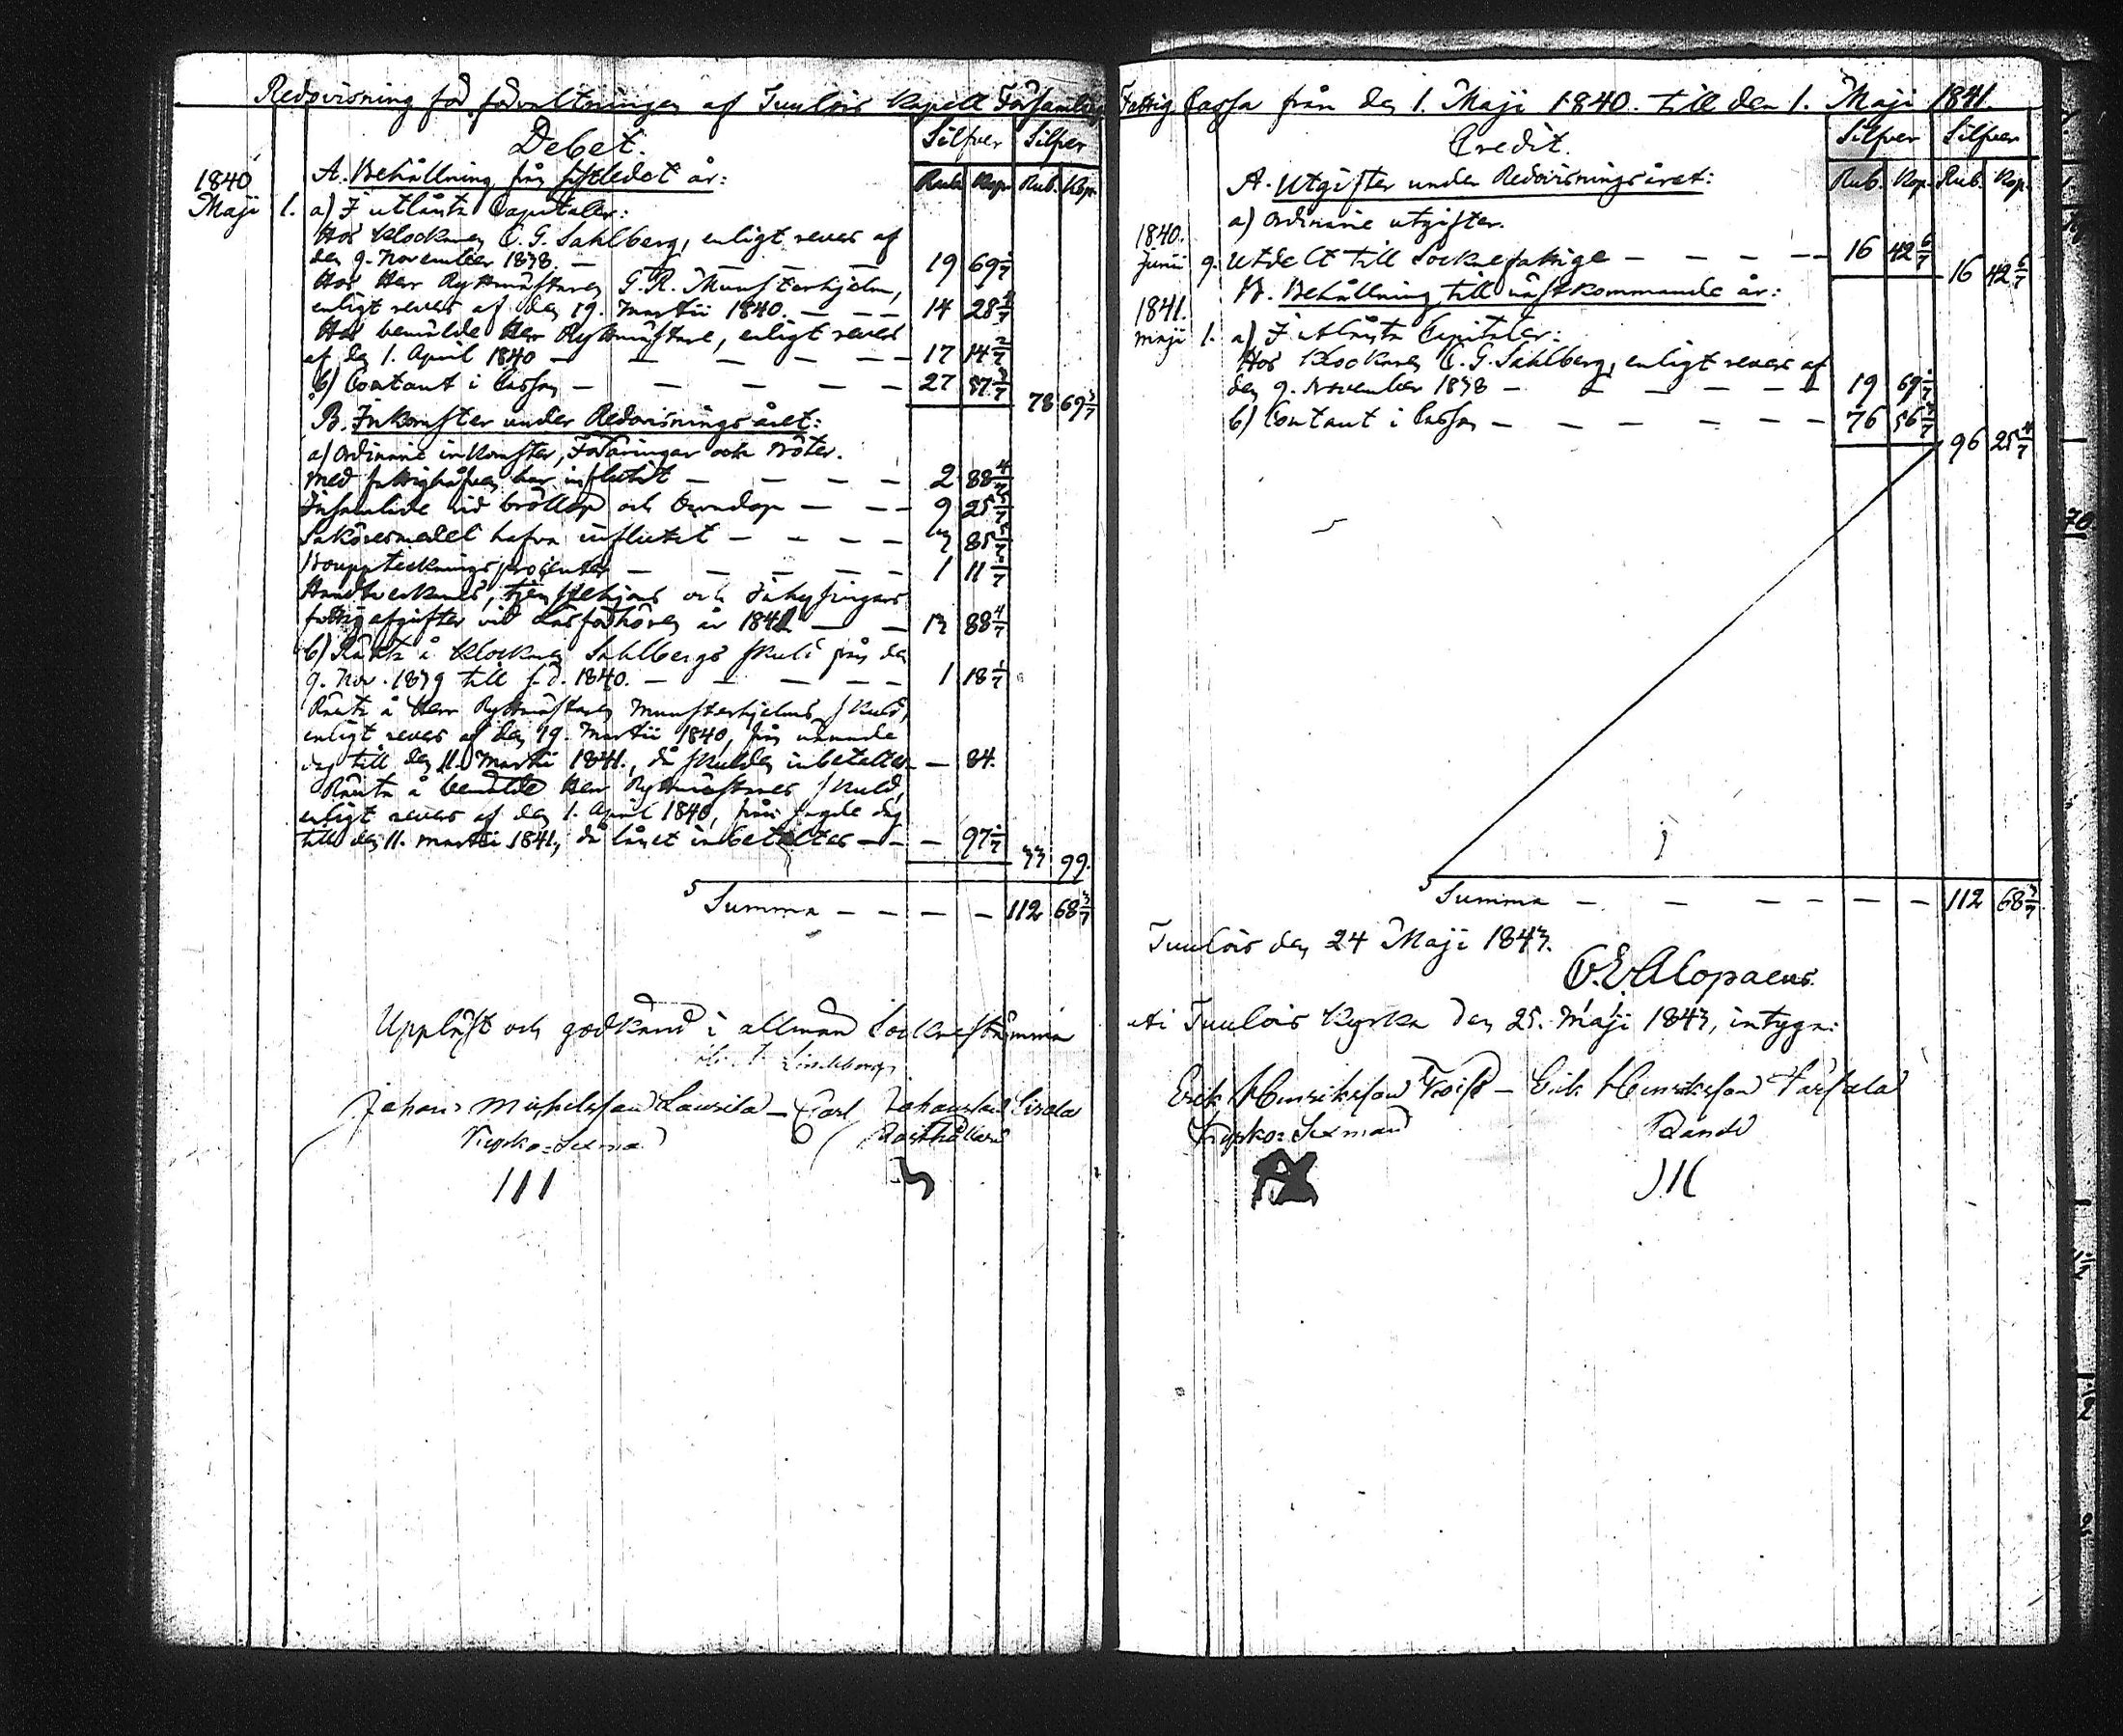 Redovisning för förvaltningen af Tuulois Kapell Församlings Fattig Cassa från den 1. Maji 1840. till den 1. Maji 1841.
Debet. Silfver Silfver
1840 A. Behållning från sistledet år: Rub. Kop. Rub. Kop.
Maji 1. a) I utlånta Capitaler:
Hos Klockaren C. G. Sahlberg, enligt revers af
den 9. November 1838. — — — — 19 69 2/7
Hos Herr Ryttmästaren G. R. Munsterhjelm,
enligt revers af den 19. Martii 1840. — — — 14 28 4/7
Hos bemälde Herr Ryttmästare, enligt revers
af den 1. April 1840 — — — — — 17 14 2/7
b) Contant i Cassan — — — — — 27 57 2/7
78 69 3/7
B. Inkomster under Redovisningsåret:
a) Ordinarie inkomster, Föräringar och Böter.
Med fattighåfven har influtit — — — — 2 88 4/7
Insamlade vid bröllop och barndop — — — 9 25 5/7
Saköresmedel hafva influtit — — — — 3 85 5/7
Bouppteckningsprocenter — — — — — 1 11 3/7
Handtverkares, tjenstehjons och inhysingars
fattigafgifter vid Läsförhören år 1841 — — 13 88 4/7
b) Ränta å Klockaren Sahlbergs skuld från den
9. Nov. 1839 till s. d. 1840. — — — — — 1 18 1/7
Ränta å Herr Ryttmästaren Munsterhjelms skuld,
enligt revers af den 19. Martii 1840, från nämnde
dag till den 11. Martii 1841., då skulden inbetaltes — — 84.
Ränta å bemälde Herr Ryttmästares skuld,
enligt revers af den 1. April 1840, från sagde dag
till den 11. Martii 1841., då lånet inbetaltes — — — 97 2/7
33 99.
Summa — — — — 112 68 3/7
Uppläst och godkänd i allmän Sockenstämma
Lindeborg
Johan Michelsson Laurila — Carl Johansson Eirola
Kyrko=Sexman
Rusthållare
Credit. Silfver Silfver
A. Utgifter under Redovisningsåret: Rub. Kop. Rub. Kop.
a) Ordinarie utgifter.
1840.
Junii 9. Utdelt till Sockne fattige — — — — 16 42 6/7
16 42 6/7
B. Behållning till nästkommande år:
1841.
Maji 1. a) I utlånta Capitaler:
Hos Klockaren C. G. Sahlberg, enligt revers af
den 9. November 1838 — — — — — 19 69
b) Contant i Cassan — — — — — — 76 56 2/7
96 25 4/7
Summa — — — — — — — 112 68 3/7
Tuulois den 24 Maji 1843.
C. E. Alopaeus.
uti Tuulois Kyrka den 25. Maji 1843, intyga:
Erik Henriksson — Erik Henriksson
Kyrko=Sexman Bonde